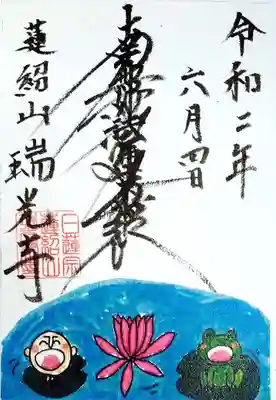 令和二年
六月四日
南無妙法蓮華経
蓮紹山
瑞光寺
日蓮宗
蓮紹山